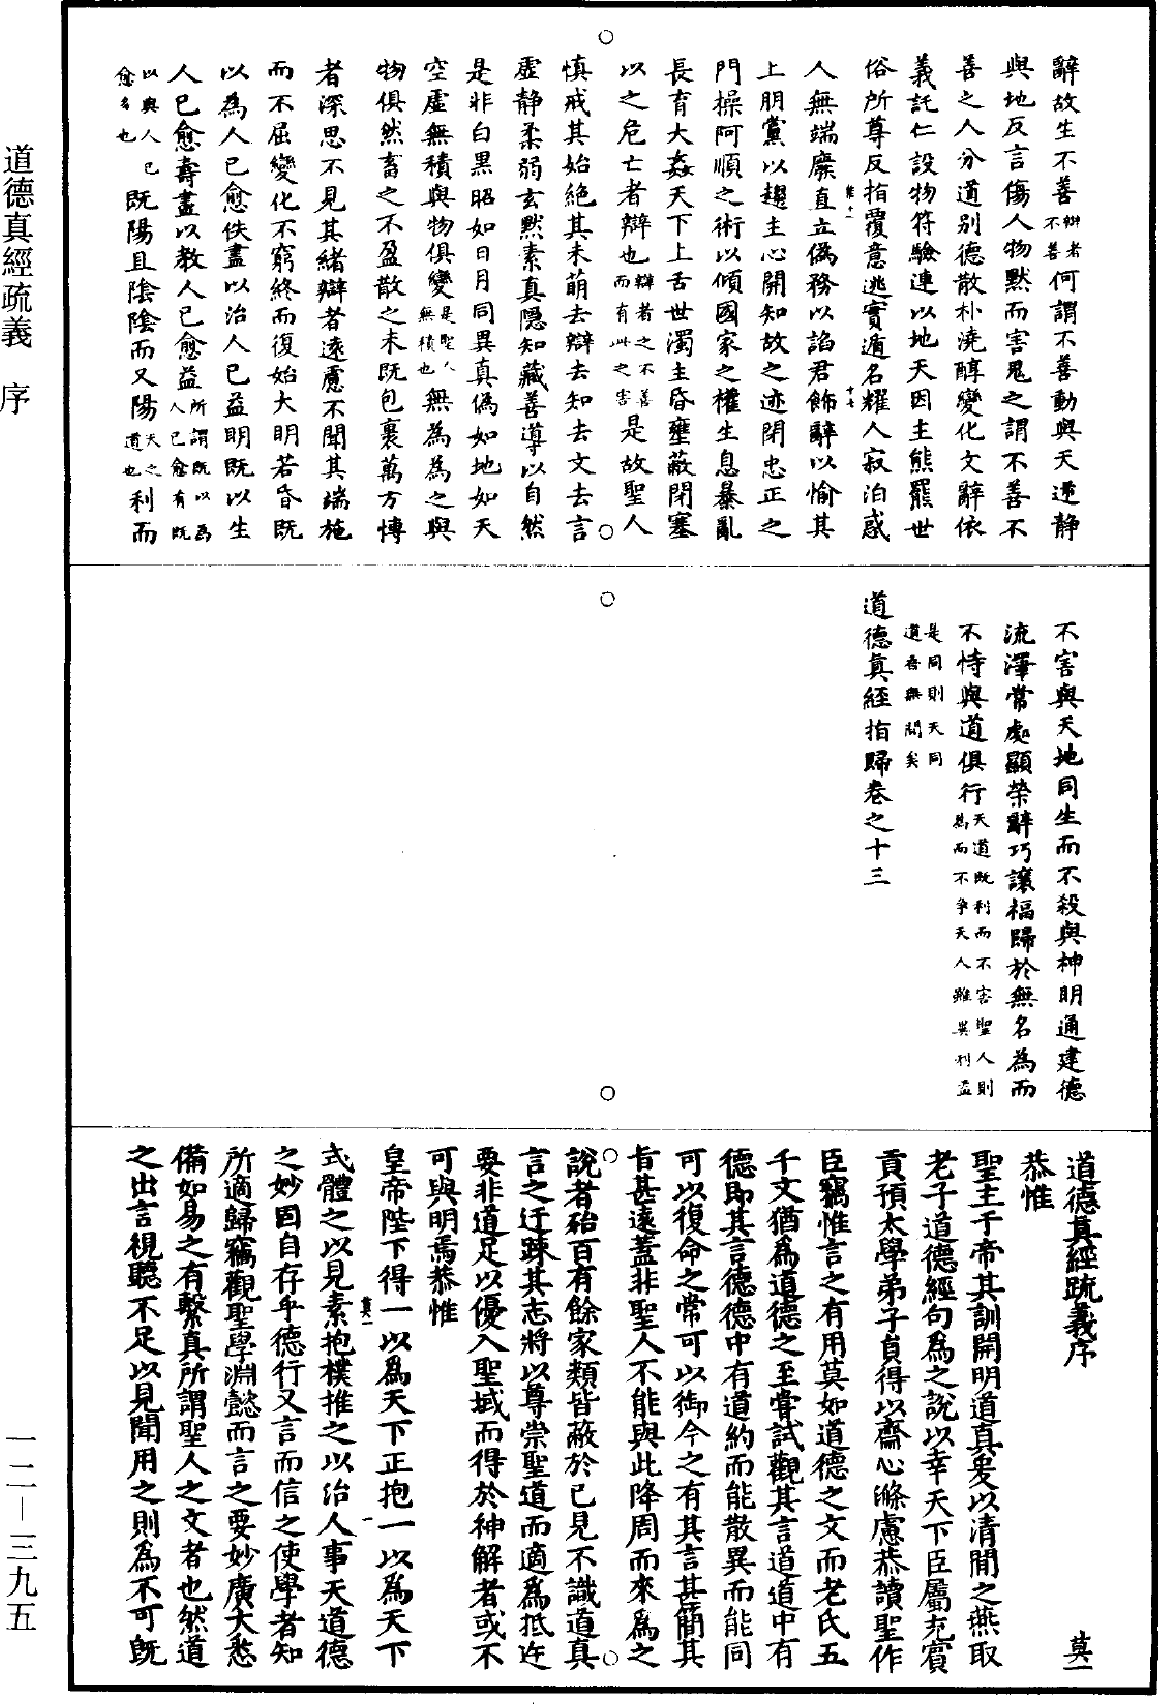 辭故生不善辯者不善何謂不善動與天逆靜
與地反言傷人物默而害鬼之謂不善不
善之人分道別德散朴澆醇變化文辭依
義託仁設物符驗連以地天因主熊羆世
俗所尊反指覆意逃實遁名耀人寂泊惑
人無端廉直立偽務以諂君飾辭以愉其
上朋黨以趨主心開知故之迹閉忠正之
門操阿順之術以傾國家之權生息暴亂
長育大姦天下上舌世濁主昏壅蔽閉塞
以之危亡者辯也辯者之不善而有此之害是故聖人
慎戒其始絶其未萌去辯去知去文去言
虛靜柔弱玄默素真隱知藏善導以自然
是非白黑昭如日月同異真偽如地如天
空虛無積與物俱變是聖人無積也無為為之與
物俱然畜之不盈散之未既包裹萬方博
者深思不見其緒辯者遠慮不聞其端施
而不屈變化不窮終而復始大明若昏既
以為人已愈佚盡以治人已益明既以生
人已愈壽盡以教人已愈益所謂既以為人已愈有既
以與人已愈多也既陽且陰陰而又陽天之道也利而
不害與天地同生而不殺與神明通建德
流澤常處顯榮辭巧讓福歸於無名為而
不恃與道俱行天道既利而不害聖人則為而不爭天人雖異利益
是同則天同道吾無間矣
道德真經指歸卷之十三
道德真經疏義序 莫一
恭惟
聖主千帝其訓開明道真爰以清閒之燕取
老子道德經句為之說以幸天下臣屬充賓
貢預太學弟子員得以齋心滌慮恭讀聖作
臣竊惟言之有用莫如道德之文而老氏五
千文猶為道德之至嘗試觀其言道道中有
德即其言德德中有道約而能散異而能同
可以復命之常可以御今之有其言甚簡其
旨甚遠蓋非聖人不能與此降周而來為之
說者殆百有餘家類皆蔽於已見不識道真
言之迂疎其志將以尊崇聖道而適為抵迕
要非道足以優入聖域而得於神解者或不
可與明焉恭惟
皇帝陛下得一以為天下正抱一以為天下
式體之以見素抱樸推之以治人事天道德
之妙因自存乎德行又言而信之使學者知
所適歸竊觀聖學淵懿而言之要妙廣大悉
備如易之有繫真所謂聖人之文者也然道
之出言視聽不足以見聞用之則為不可既
道德真經疏義 序
一二－三九五